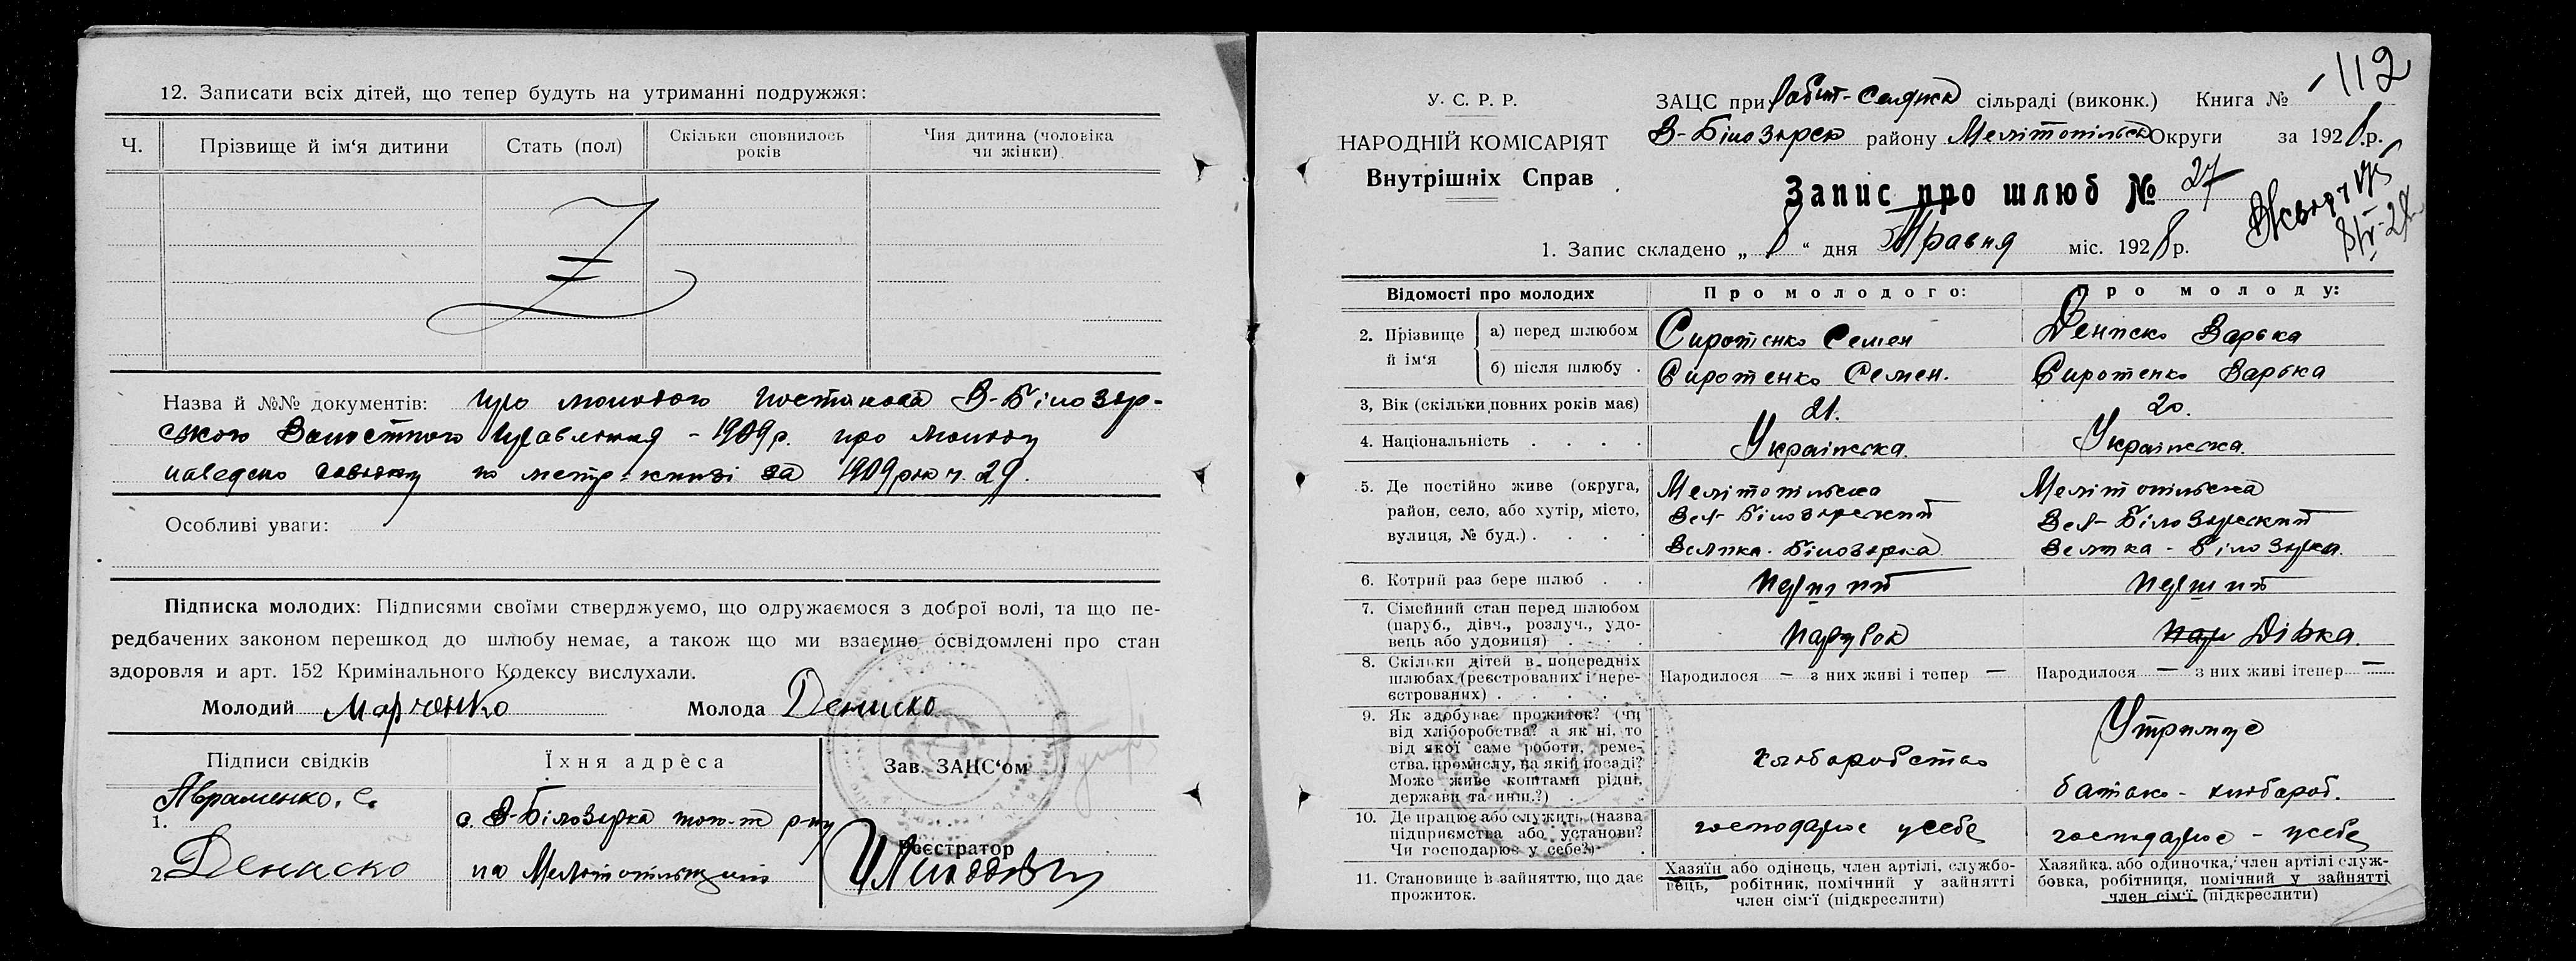 12. Записати всіх дітей, що тепер будуть на утриманні подружжя:
Ч.
Прізвище й ім‘я дитини
Стать (пол)
Скільки сповнилось
років
Чия дитина (чоловіка
чи жінки)
Z
Назва й №№ документів: про молодого постанова В-Білозер-
ського Волостного Правління - 1909р. про молоду
наведено довідку по метр-книзі за 1909 рік ч. 29.
Особливі уваги:
Підписка молодих: Підписями своїми стверджуємо, що одружаємося з доброї волі, та що пе-
редбачених законом перешкод до шлюбу немає, а також що ми взаємно освідомлені про стан
здоровля и арт. 152 Кримінального Кодексу вислухали.
Молодий Марченко Молода Дениско
Підписи свідків
Їхня адреса
Зав. ЗАЦС‘ом
Авраменко. С.
1.
с. В-Білозерка того-ж р-ну
2. Дениско
на Мелітопільщині
Реєстратор
112
У. С. Р. Р.
НАРОДНІЙ КОМІСАРІЯТ
Внутрішніх Справ
ЗАЦС при Робіт-Селянск сільраді (виконк.) Книга №
В-Білозерск району Мелітопільськ Округи за 1928 р.
Запис про шлюб № 27
8/V-28
1. Запис складено „ 8 “ дня Травня міс. 1928 р.
Відомості про молодих
Про молодого:
Про молоду:
2. Прізвище й ім‘я
а) перед шлюбом
Сиротенко Семен
Дениско Варька
б) після шлюбу
Сиротенко Семен.
Сиротенко Варька
3, Вік (скільки повних років має)
21.
20.
4. Національність
Українська.
Українська.
5. Де постійно живе (округа,
район, село, або хутір, місто,
вулиця, № буд.)
Мелітопільска
Вел-Білозерский
Велика-Білозерка
Мелітопільска
Вел-Білозерский
Велика-Білозерка.
6. Котрий раз бере шлюб
перший
перший
7. Сімейний стан перед шлюбом
(паруб., дівч., розлуч., удо-
вець або удовиця)
парубок
пар Дівка.
8. Скільки дітей в попередніх
шлюбах (реєстрованих і нере-
єстрованих)
Народилося — з них живі і тепер —
Народилося — з них живі ітепер —
9. Як здобуває прожиток? (чи
від хліборобства? а як ні, то
від якої саме роботи, реме-
ства, промислу, на якій посаді?
Може живе коштами рідні,
держави та инш.?)
хліборобство
Утримує
батько - хлібороб.
10. Де працює або служить (назва
підприємства або установи?
Чи господарює у себе?)
господарює у себе
господарює - у себе
11. Становище в зайняттю, що дає
прожиток.
Хазяїн або одінець, член артілі, службо-
вець, робітник, помічний у зайнятті
член сім‘ї (підкреслити)
Хазяйка, або одиночка, член артілі служ-
бовка, робітниця, помічний у зайнятті
член сім‘ї (підкреслити)